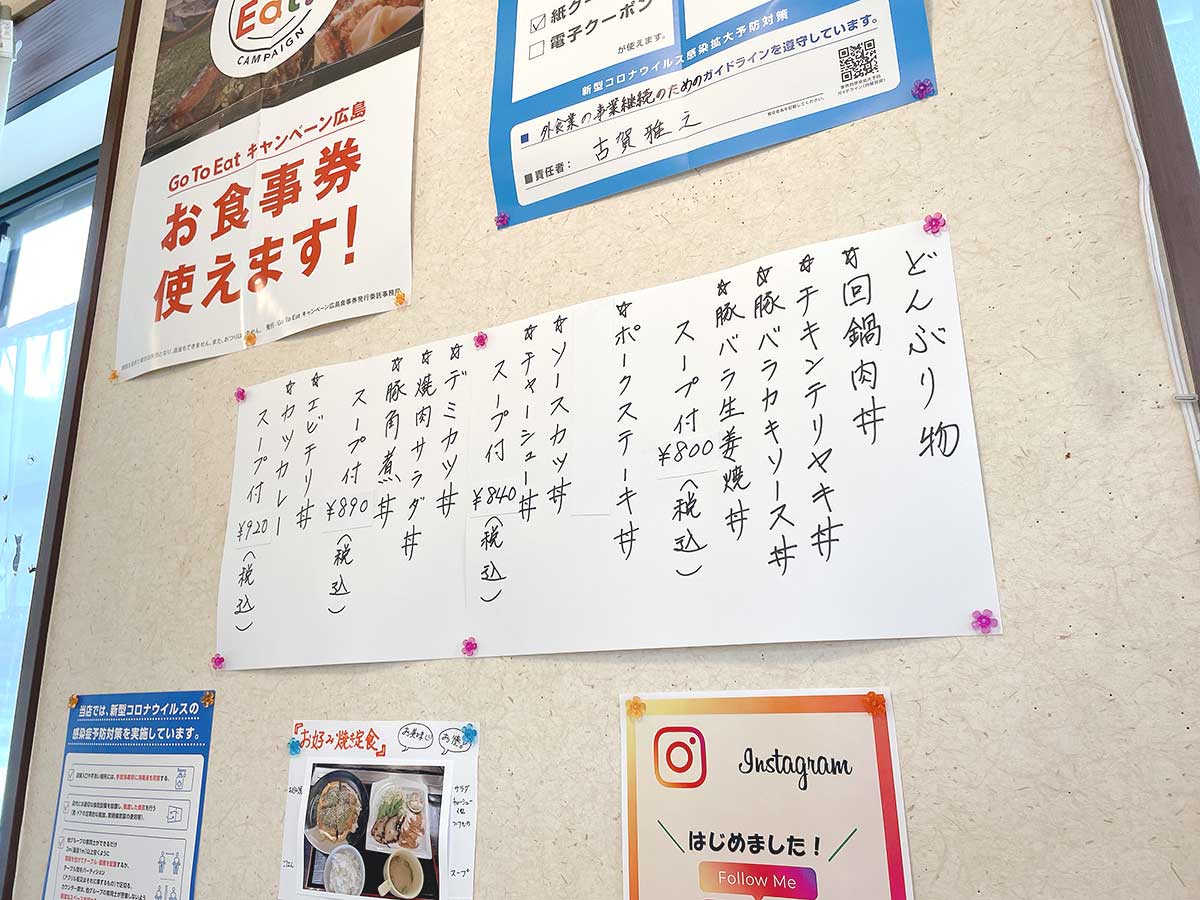 Eat!
CAMPAIGN
Go To Eat キャンペーン広島
お食事券
使えます!
発行 Go To Eat キャンペーン広島食事券発行委託事務局
電子クーポン
が使えます。
新型コロナウイルス感染拡大予防対策
外食業の事業継続のためのガイドラインを遵守しています。
■責任者:
古賀雅之
どんぶり物
☆回鍋肉丼
☆チキンテリヤキ丼
☆豚バラカキソース丼
☆豚バラ生姜焼丼
スープ付¥800(税込)
☆ポークステーキ丼
☆ソースカツ丼
☆チャーシュー丼
スープ付¥840(税込)
☆デミカツ丼
☆焼肉サラダ丼
☆豚角煮丼
スープ付¥890(税込)
☆エビチリ丼
☆カツカレー
スープ付¥920(税込)
当店では、新型コロナウイルスの
感染症予防対策を実施しています。
『お好み焼き定食』
サラダ
ごはん
スープ
Instagram
はじめました!
Follow Me